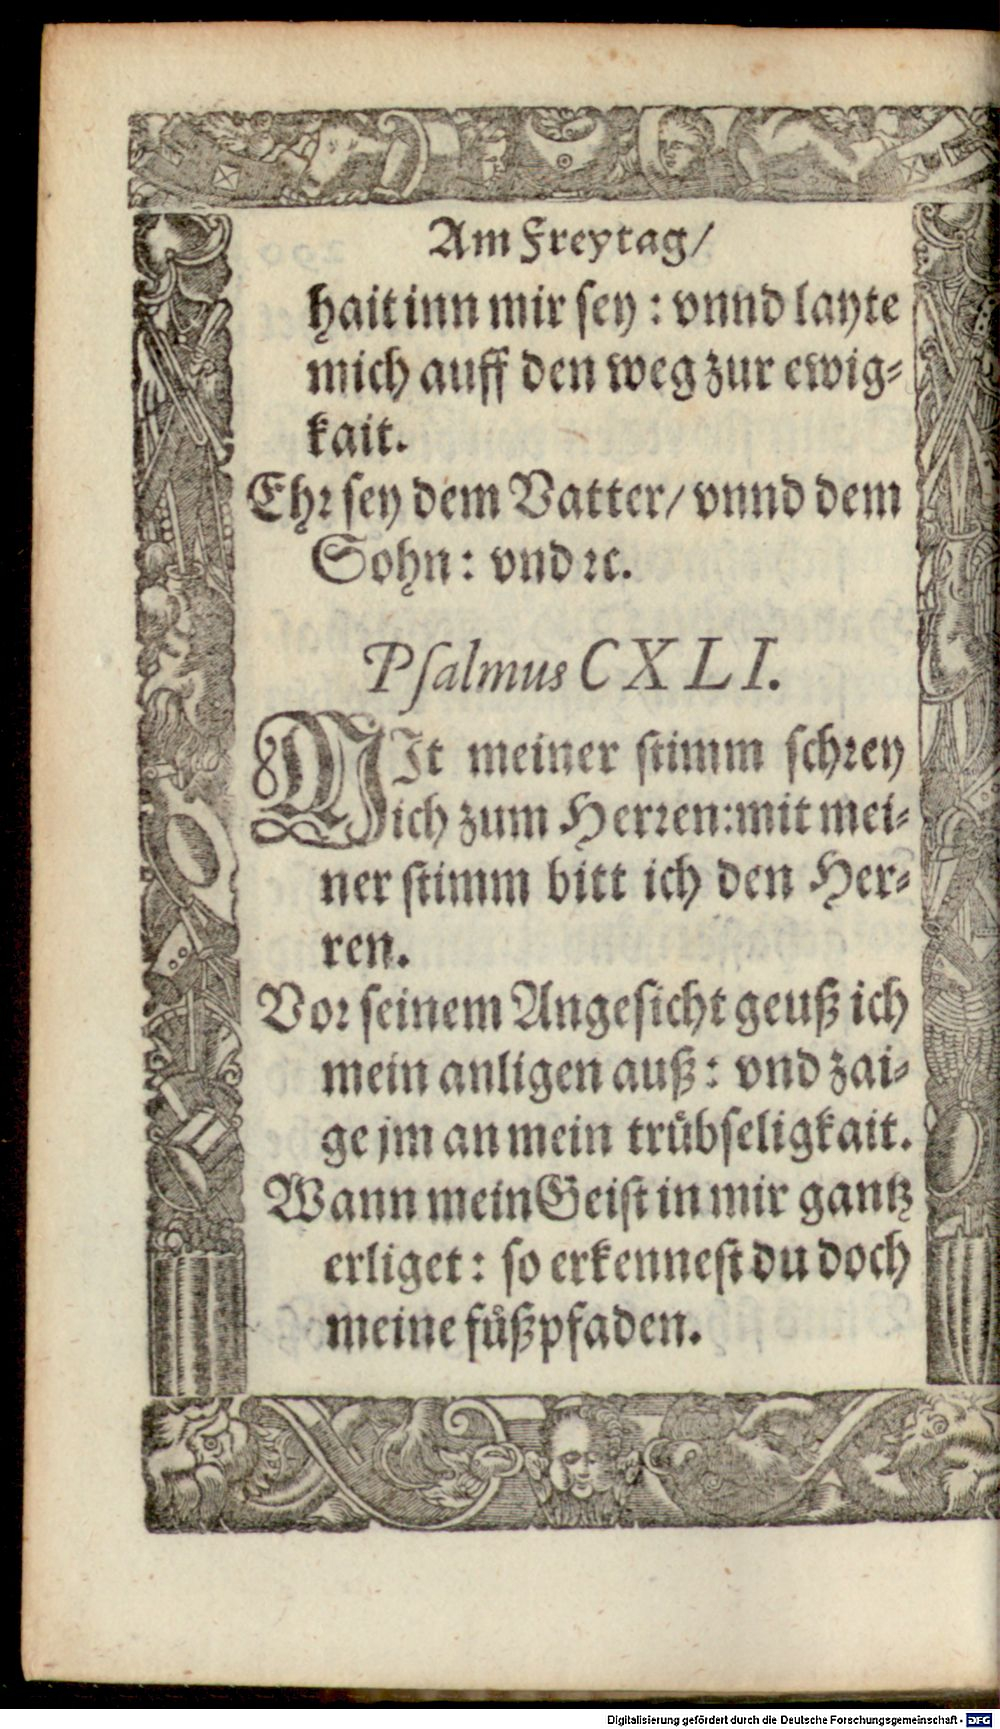 Am Freytag/
hait inn mir sey : vnnd layte
mich auff den weg zur ewig⸗
kait.
Ehr sey dem Vatter/ vnnd dem
Sohn : vnd ꝛc.
Psalmus CXLI.
MIt meiner stimm schrey
ich zum Herren: mit mei⸗
ner stimm bitt ich den Her⸗
ren.
Vor seinem Angesicht geuß ich
mein anligen auß : vnd zai⸗
ge jm an mein trůbseligkait.
Wann mein Geist in mir gantz
erliget : so erkennest du doch
meine fůßpfaden.
Digitalisierung gefördert durch die Deutsche Forschungsgemeinschaft - DFG